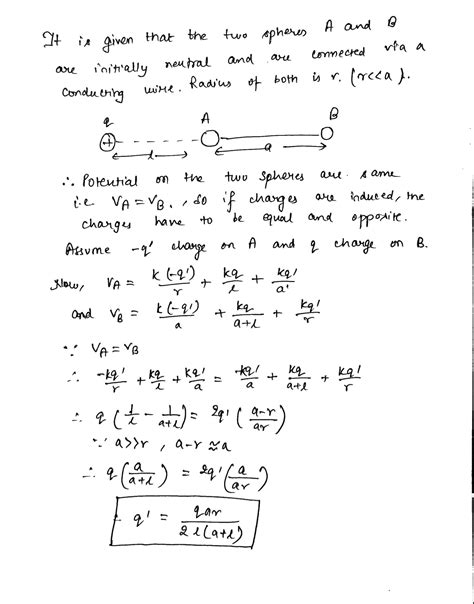 It is given that the two spheres A and B
are initially neutral and are connected via a
conducting wire. Radius of both is r. (r<<a).
q A B
+ l a
∴ Potential on the two spheres are same
i.e VA = VB. , so if charges are induced, the
charges have to be equal and opposite.
Assume -q' charge on A and q charge on B.
Now, VA = k(-q')/r + kq/l + kq'/a'
and VB = k(-q')/a + kq/a+l + kq'/r
∵ VA = VB
∴ -kq'/r + kq/l + kq'/a = -kq'/a + kq/a+l + kq'/r
∴ q (1/l - 1/a+l) = 2q' (a-r/ar)
∵ a>>r , a-r ≈ a
∴ q (a/a+l) = 2q' (a/ar)
q' = qar/2l(a+l)